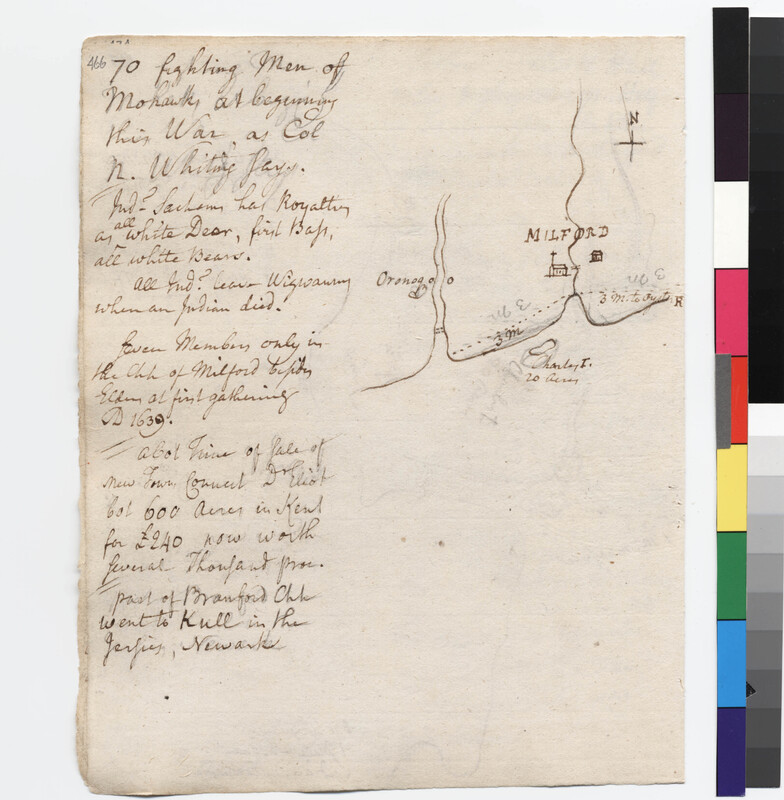 466
70 fighting Men of
Mohawks at beginning
this War as Col
N. Whiting says.
Indⁿ Sachems had Royalties
as all white Deer, first Bass,
all white Bears.
All Indⁿ leave Wigwaums
when an Indian died.
Seven Members only in
the Chh of Milford besides
Elders at first gathering
AD 1639.
Abot Time of Sale of
New Town Connect Dʳ Eliot
bot 600 Acres in Kent
for £240 now worth
several Thousand proc.
part of Branford Chh
went to Kull in the
Jersies, Newark
N
MILFORD
Oronoq
3 M
3 M. to Oyst. R
Charles I.
20 Acres